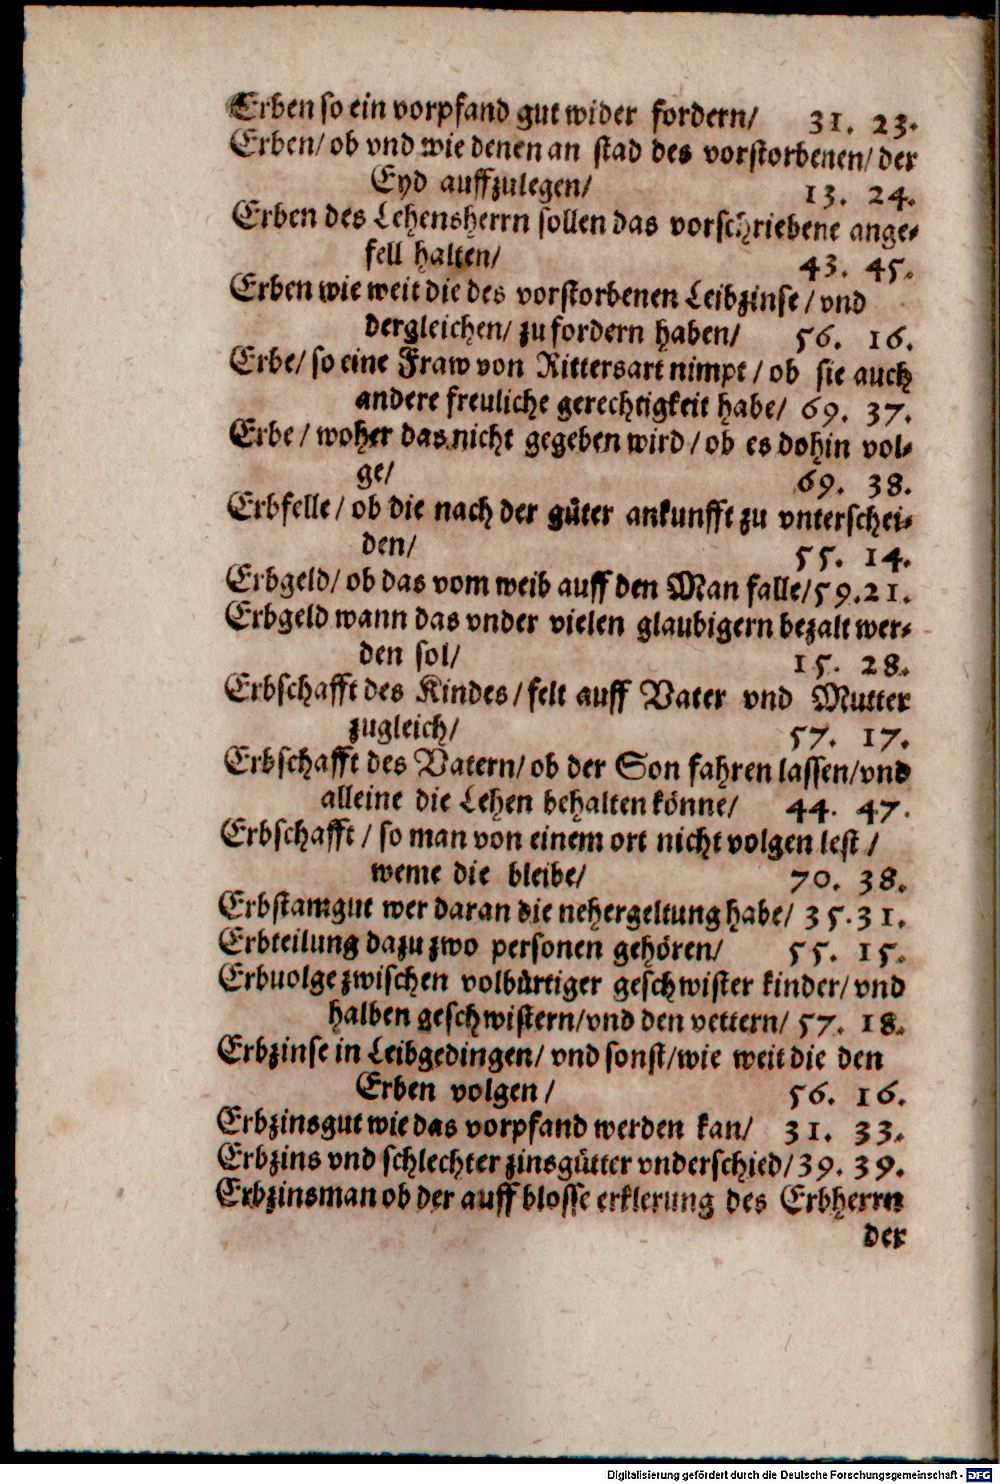 Erben so ein vorpfand gut wider fordern/ 31. 23.
Erben/ ob vnd wie denen an stad des vorstorbenen/ der
Eyd auffzulegen/ 13. 24.
Erben des Lehensherrn sollen das vorschriebene ange-
fell halten/ 43. 45.
Erben wie weit die des vorstorbenen Leibzinse / vnd
dergleichen/ zu fordern haben/ 56. 16.
Erbe/ so eine Fraw von Rittersart nimpt / ob sie auch
andere freuliche gerechtigkeit habe/ 69. 37.
Erbe / woher das nicht gegeben wird / ob es dohin vol-
ge/ 69. 38.
Erbfelle / ob die nach der güter ankunfft zu vnterschei-
den/ 55. 14.
Erbgeld/ ob das vom weib auff den Man falle/ 59. 21.
Erbgeld wann das vnder vielen glaubigern bezalt wer-
den sol/ 15. 28.
Erbschafft des Kindes / felt auff Vater vnd Mutter
zugleich/ 57. 17.
Erbschafft des Vatern/ ob der Son fahren lassen/ vnd
alleine die Lehen behalten könne/ 44. 47.
Erbschafft / so man von einem ort nicht volgen lest /
weme die bleibe/ 70. 38.
Erbstamgut wer daran die nehergeltung habe/ 35. 31.
Erbteilung dazu zwo personen gehören/ 55. 15.
Erbuolge zwischen volbürtiger geschwister kinder/ vnd
halben geschwistern/ vnd den vettern/ 57. 18.
Erbzinse in Leibgedingen/ vnd sonst/ wie weit die den
Erben volgen / 56. 16.
Erbzinsgut wie das vorpfand werden kan/ 31. 33.
Erbzins vnd schlechter zinsgütter vnderschied/ 39. 39.
Erbzinsman ob der auff blosse erklerung des Erbherrn
der
Digitalisierung gefördert durch die Deutsche Forschungsgemeinschaft - DFG